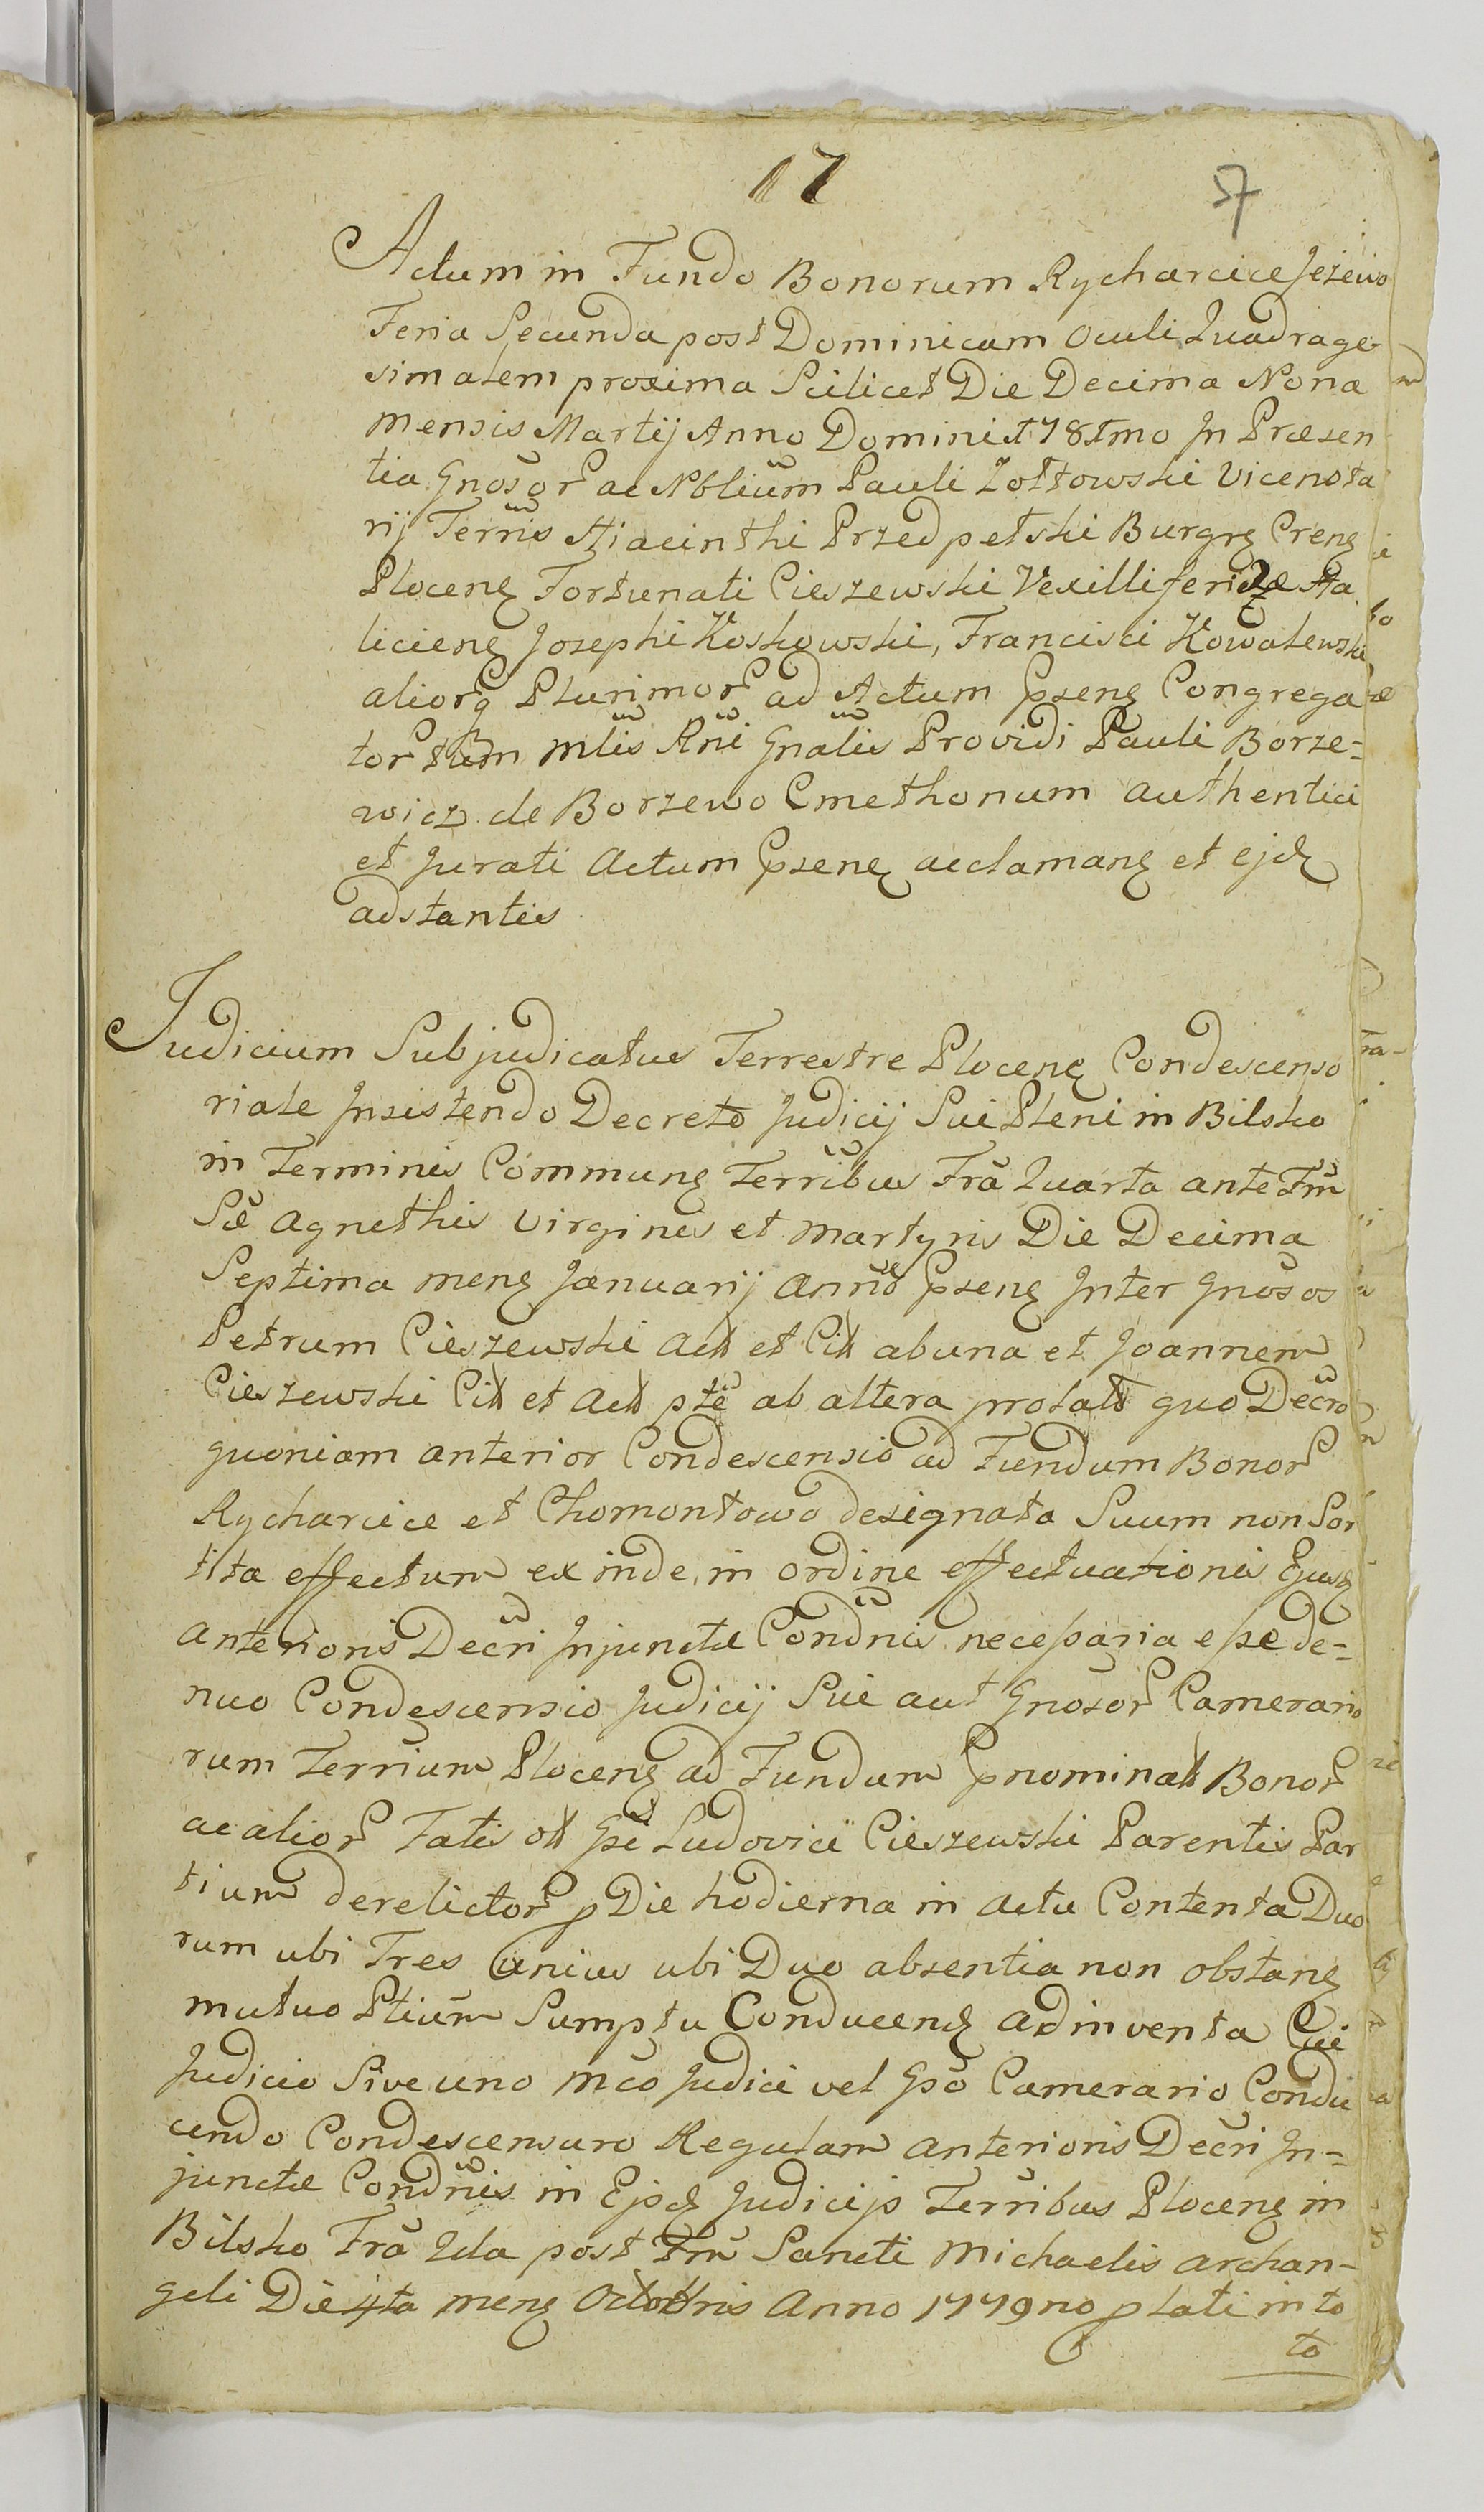 17
57
Actum in Fundo Bonorum Rycharcice Jeżewo
Feria Secunda post Dominicam Oculi Quadrage
simalem proxima Scilicet Die Decima Nona
Mensis Martij Anno Domini 1781mo In Præsen
tia Gnosor ac Nblium Pauli Zołtowski Vicenota
rij Terris Hiacinthi Przedpełski Burgrę Crenę
Plocenę Fortunati Cieszewski Vexilliferidæ Ha
licienę Josephi Koskowski, Francisci Kowalewski
aliorq Plurimor ad Actum Pzsenę Congrega
tor tum Mlis Rni Gnalis Providi Pauli Borze=
wicz de Borzewo Cmethonum authentici
et Jurati Actum Pzsenę acclamanę et ejdę
adstantis
Judicium Subjudicatus Terrestre Plocenę Condescenso
riale Insistendo Decreto Judicij Sui Pleni in Bilsko
in Terminis Communę Terribus Fra Quarta ante Fm
Sæ Agnethis Virginis et Martyris Die Decima
Septima Menę Januarij Anno Pzsenę Inter Gnosos
Petrum Cieszewski Act et Cit ab una et Joannem
Cieszewski Cit et Act pte ab altera prolato quo Decro
quoniam anterior Condescensio ad Fundum Bonor
Rycharcice et Chomontowo designata Suum non Sor
tita effectum ex inde, in ordine effectuationis Ejusq
anterioris Decri Injunctæ Condnis necessaria esse de=
nuo Condescensio Judicij Sui aut Gnosor Camerario
rum Terrium Plocenę ad Fundum Pnominat Bonor
ac alior Fatis ol Gsi Ludovici Cieszewski Parentis Par
tium derelictor p Die hodierna in actu Contenta Duo
rum ubi Tres Unius ubi Duo absentia non obstanę
mutuo Ptium Sumptu Conducenę adinventa Cui
Judicio Sive uno Mco Judici vel Gso Camerario Condu
cendo Condescensuro Regulam anterioris Decri In=
junctæ Condnis in Ejsdę Judicijs Terribus Plocenę in
Bilsko Fra 2da post Fm Sancti Michaelis Archan-
geli Die 4ta Menę Octobris Anno 1779no p lati in to
to